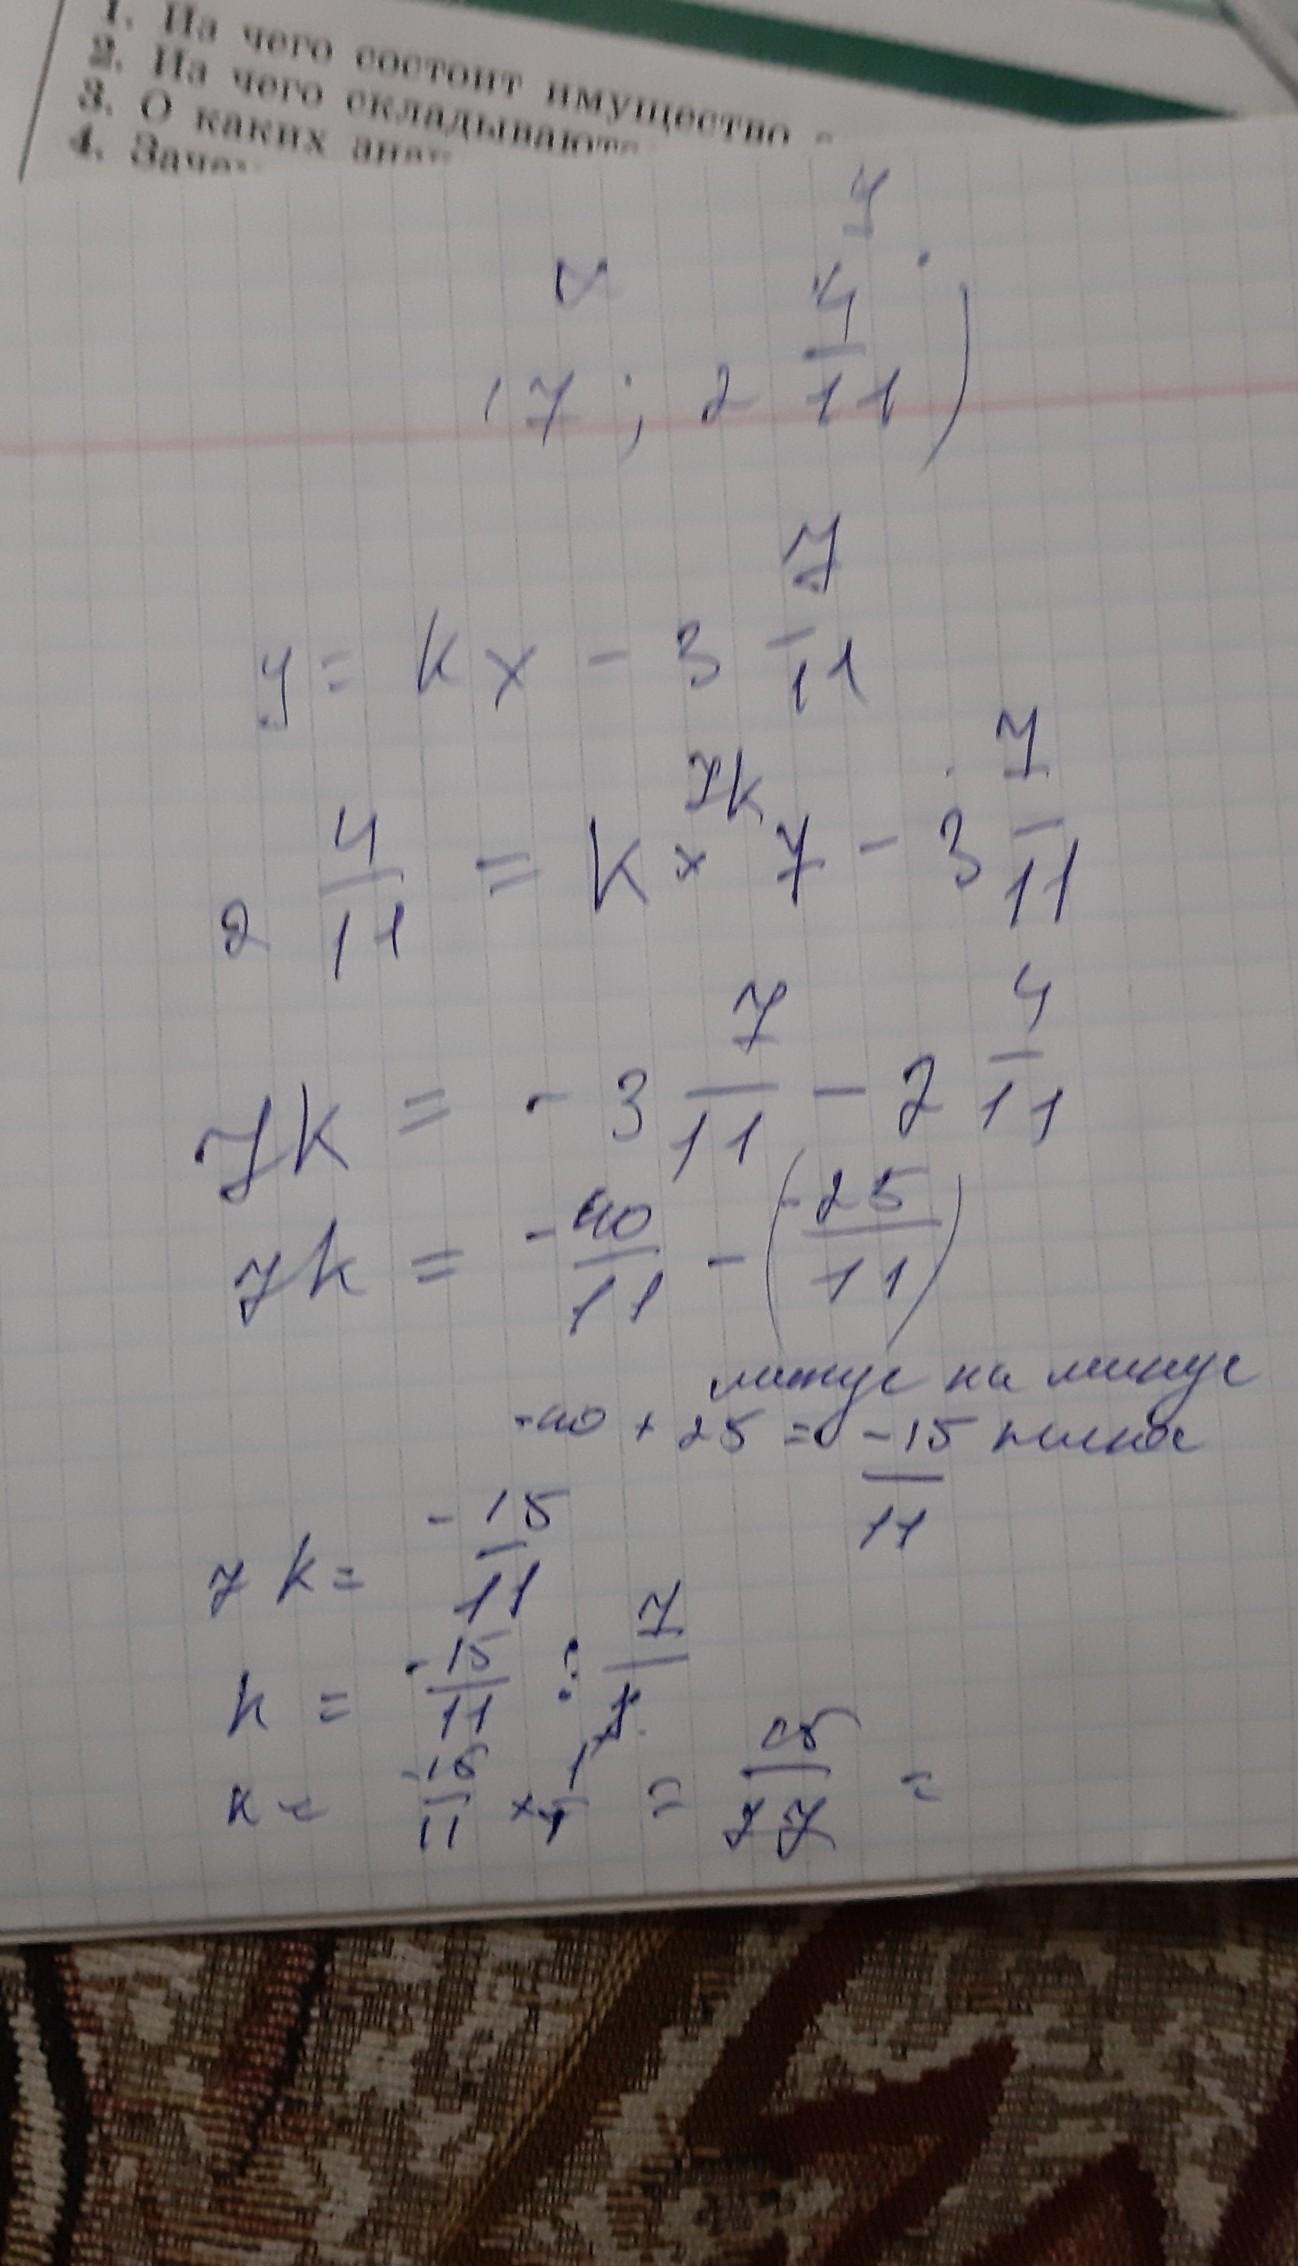 1. Из чего состоит имущество
2. Из чего складывают
3. О каких
4. Заче
y
x
4
(7; 2 4/11)
y = kx - 3 7/11
7k
2 4/11 = k × 7 - 3 7/11
7k = - 3 7/11 - 2 4/11
7k = - 40/11 - (- 25/11)
минус на минус
-40 + 25 = -15/11 плюс
7k = -15/11
k = -15/11 : 7/1
k = -15/11 × 1/7 = 15/77 =